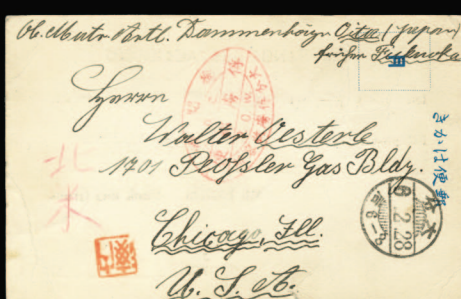 Ob. Matr. Artl. Dammenhäyn Oita (Japan)
früher Fukuoka
Herrn
Walter Oesterle
1701 Peoples Gas Bldg.
Chicago, Ill.
U. S. A.
きかは便郵
北
米
大分
6.2.28